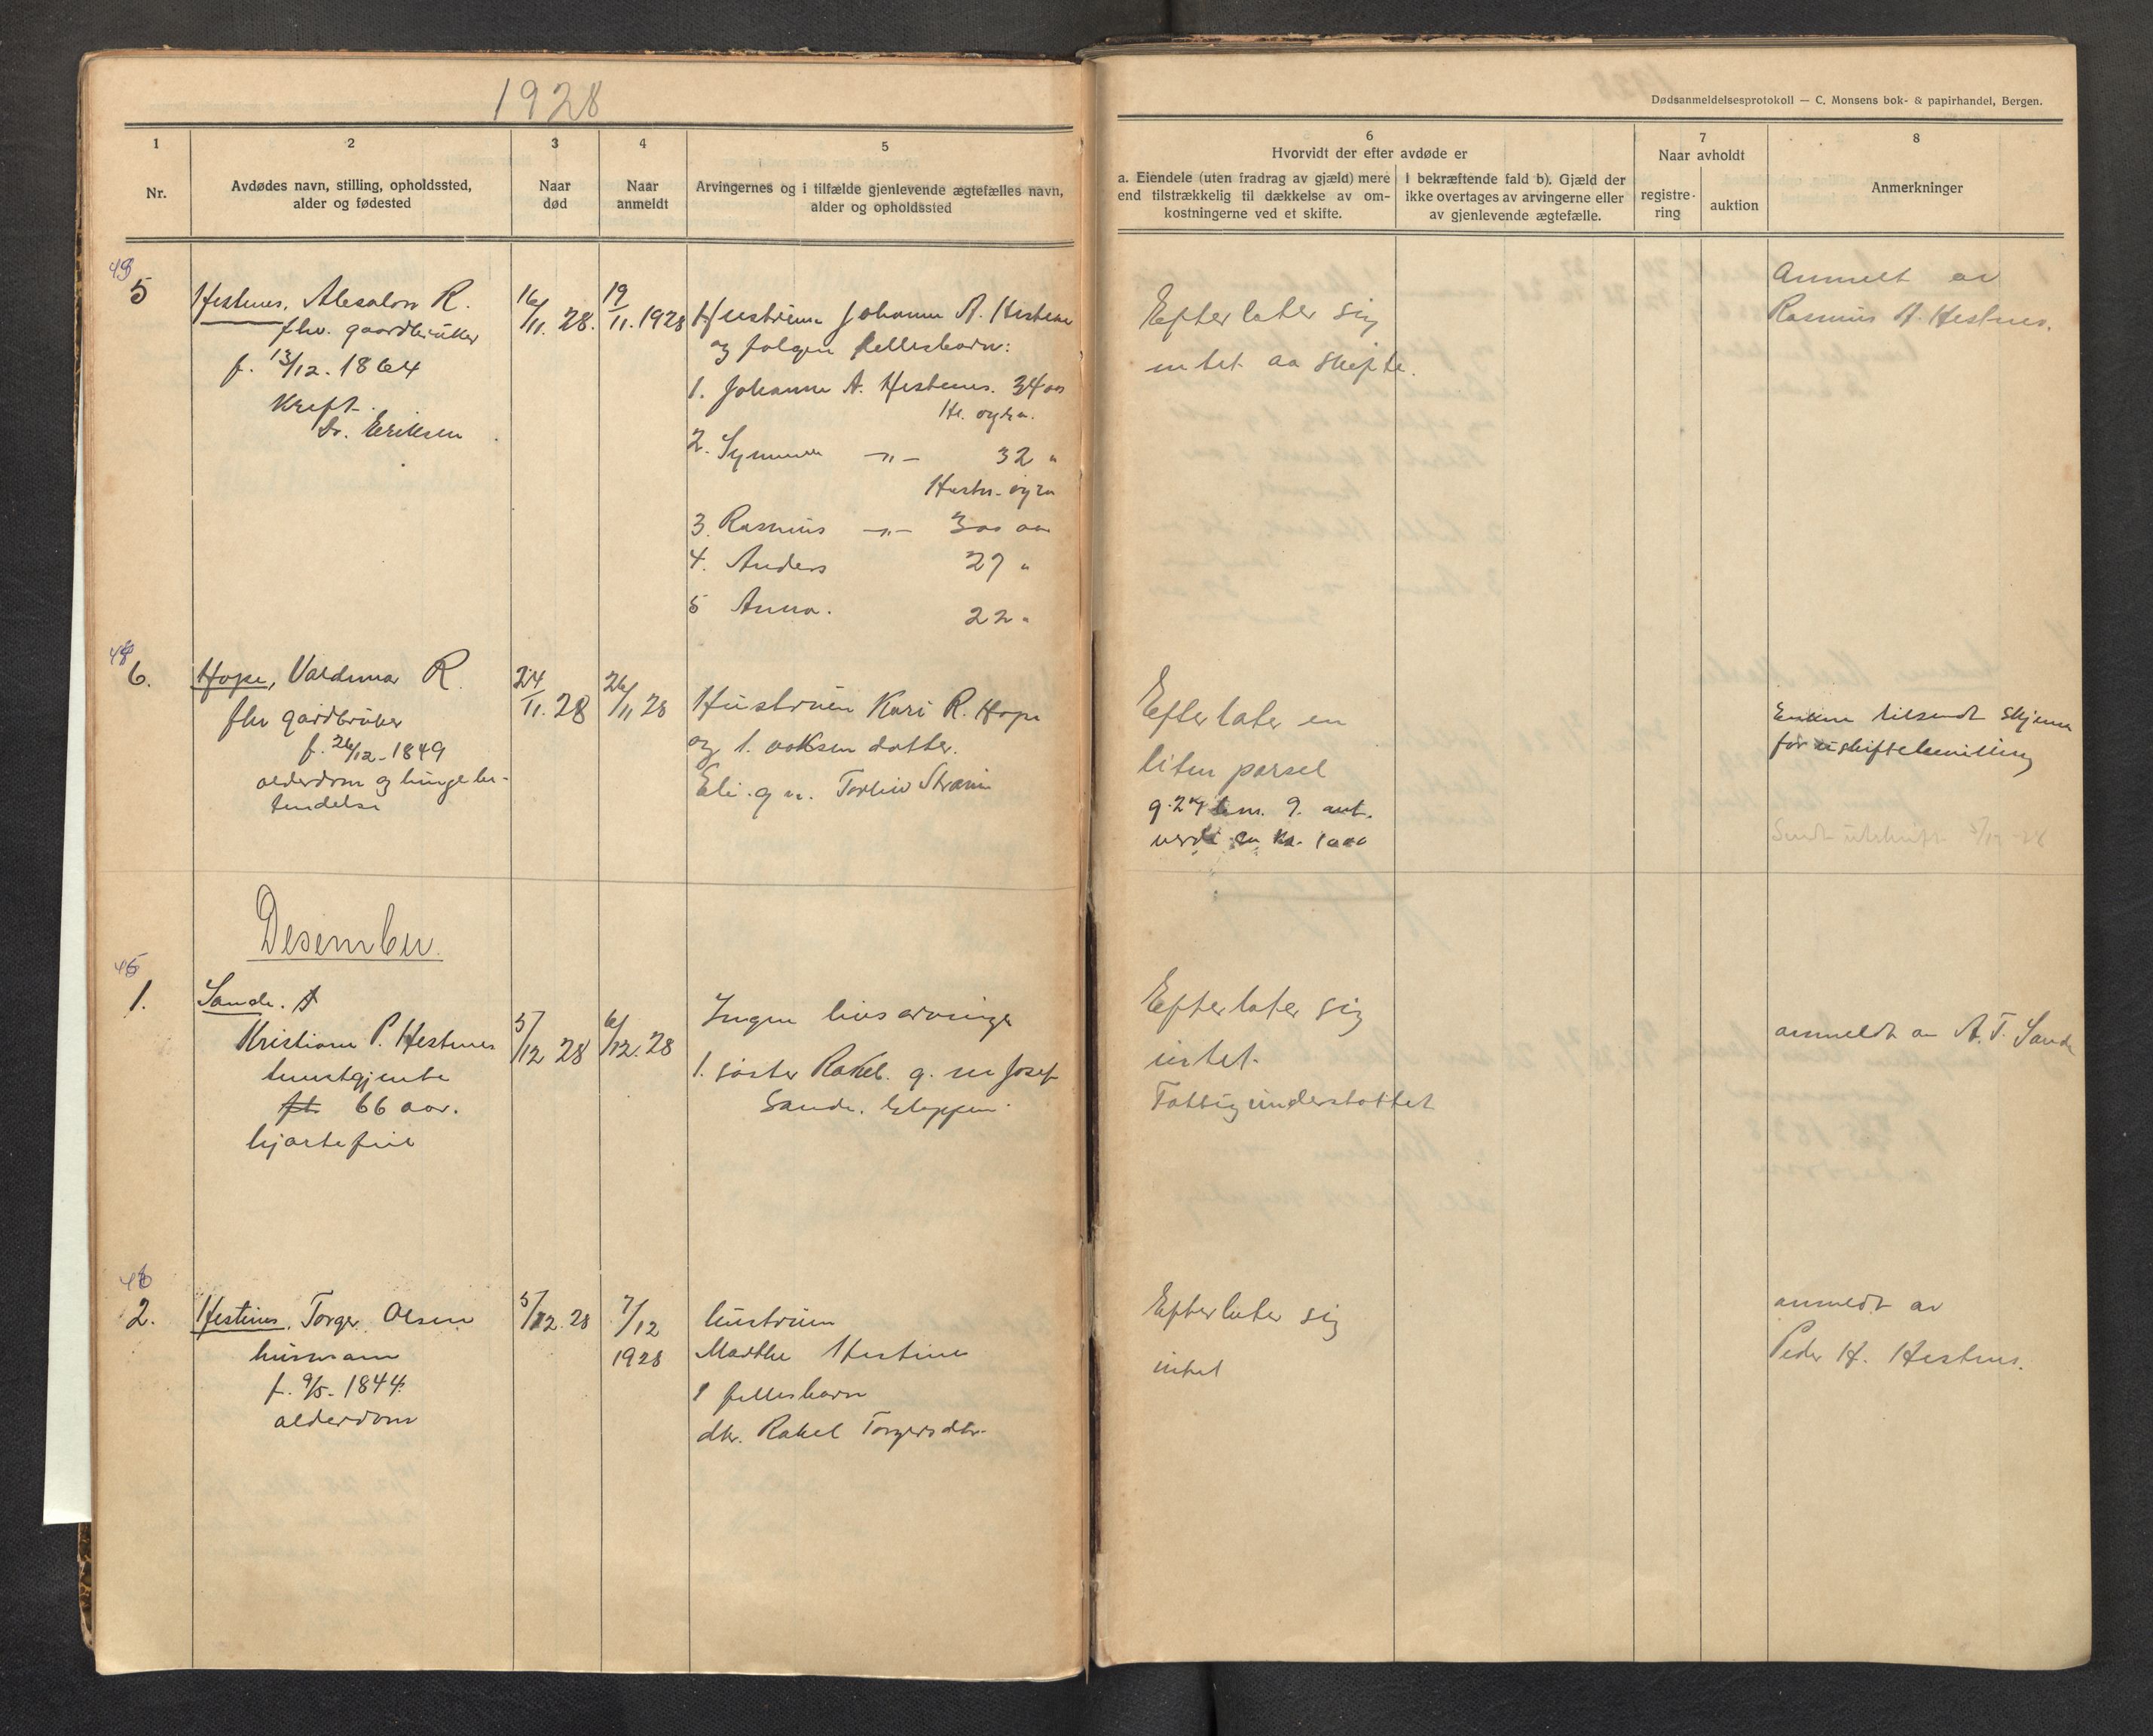 1928
Dødsanmeldelsesprotokoll — C. Monsens bok- & papirhandel, Bergen.
1
2
3
4
5
6
7
8
Nr.
Avdødes navn, stilling, opholdssted,
alder og fødested
Naar
død
Naar
anmeldt
Arvingernes og i tilfælde gjenlevende ægtefælles navn,
alder og opholdssted
Hvorvidt der efter avdøde er
a. Eiendele (uten fradrag av gjæld) mere
end tilstrækkelig til dækkelse av om-
kostningerne ved et skifte.
I bekræftende fald b). Gjæld der
ikke overtages av arvingerne eller
av gjenlevende ægtefælle.
Naar avholdt
registre-
ring
auktion
Anmerkninger
5
Hestenes, Absalon R.
fhv. gaardbruker
f. 13/12. 1864
Kreft
Dr. Eriksen
16/11. 28.
19/11. 1928
Hustruen Johanne A. Hestenes
og følgen fellesbarn:
1. Johanne A. Hestenes. 34 aar
2. 32 "
3. Rasmus -"- 30
4. Anders 27 "
5 Anna. 22 "
Efterlater sig
intet aa skifte.
Anmelt av
Rasmus A. Hestnes.
6.
Hope, Valdemar R.
fhv gardbruker
f. 26/12 - 1849
alderdom og lungebe-
tendelse
24/11. 28
26/11 28
Hustruen Kari R. Hope
og 1. voksen datter.
Eli. g m.
Efterlater en
liten parsel
g. 27 bnr. 9. ant.
verdi kr. 1000
Enken tilsendt skjema
for uskiftebevilling
Sendt utskrift
Desember.
45
1.
Sande. A
Kristiane P. Hestnes
tenestgjente
66 aar.
hjartefeil
5/12 28
6/12. 28
Ingen livsarvinger
1. søster Rakel. g. m Josef
Sande. Gloppen.
Efterlater sig
intet.
Fattigunderstøttet
anmeldt av A. T. Sande
46
2.
Hestenes, Torger Olsen
husmann
f. 9/5. 1844.
alderdom
5/12. 28
7/12
1928
hustruen
Marthe Hestnes
1 fellesbarn
dtr. Rakel Torgersdtr.
Efterlater sig
intet
anmeldt av
Peder H. Hestnes.